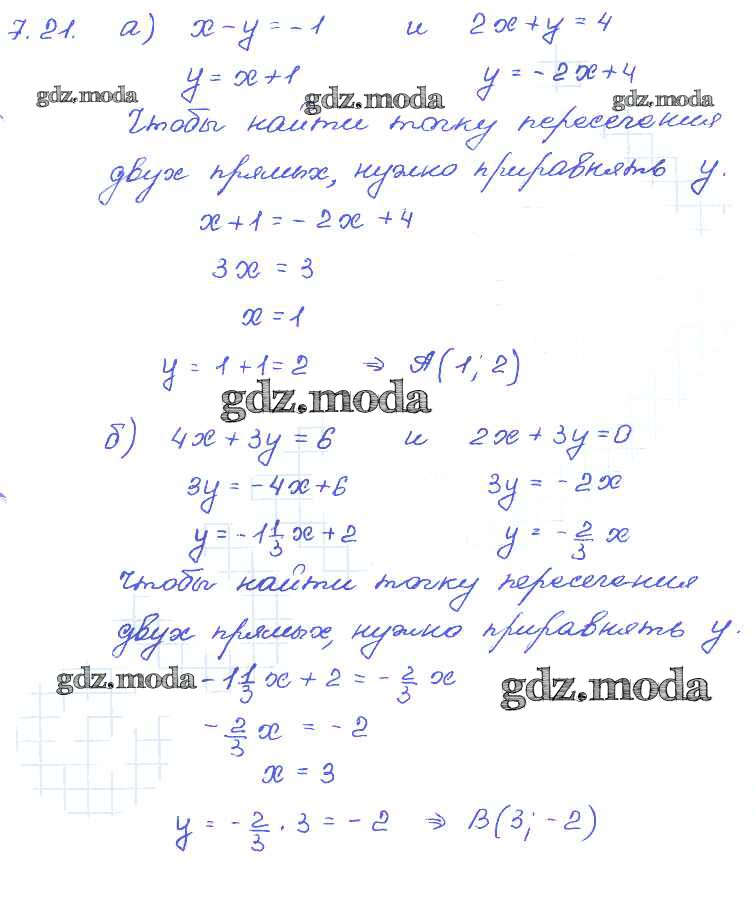 7.21. а) x - y = -1 и 2x + y = 4
y = x + 1 y = -2x + 4
gdz.moda gdz.moda gdz.moda
Чтобы найти точку пересечения
двух прямых, нужно приравнять y.
x + 1 = -2x + 4
3x = 3
x = 1
y = 1 + 1 = 2 ⇒ A(1; 2)
gdz.moda
б) 4x + 3y = 6 и 2x + 3y = 0
3y = -4x + 6 3y = -2x
y = -1 1/3 x + 2 y = -2/3 x
Чтобы найти точку пересечения
двух прямых, нужно приравнять y.
gdz.moda -1 1/3 x + 2 = -2/3 x gdz.moda
-2/3 x = -2
x = 3
y = -2/3 · 3 = -2 ⇒ B(3; -2)